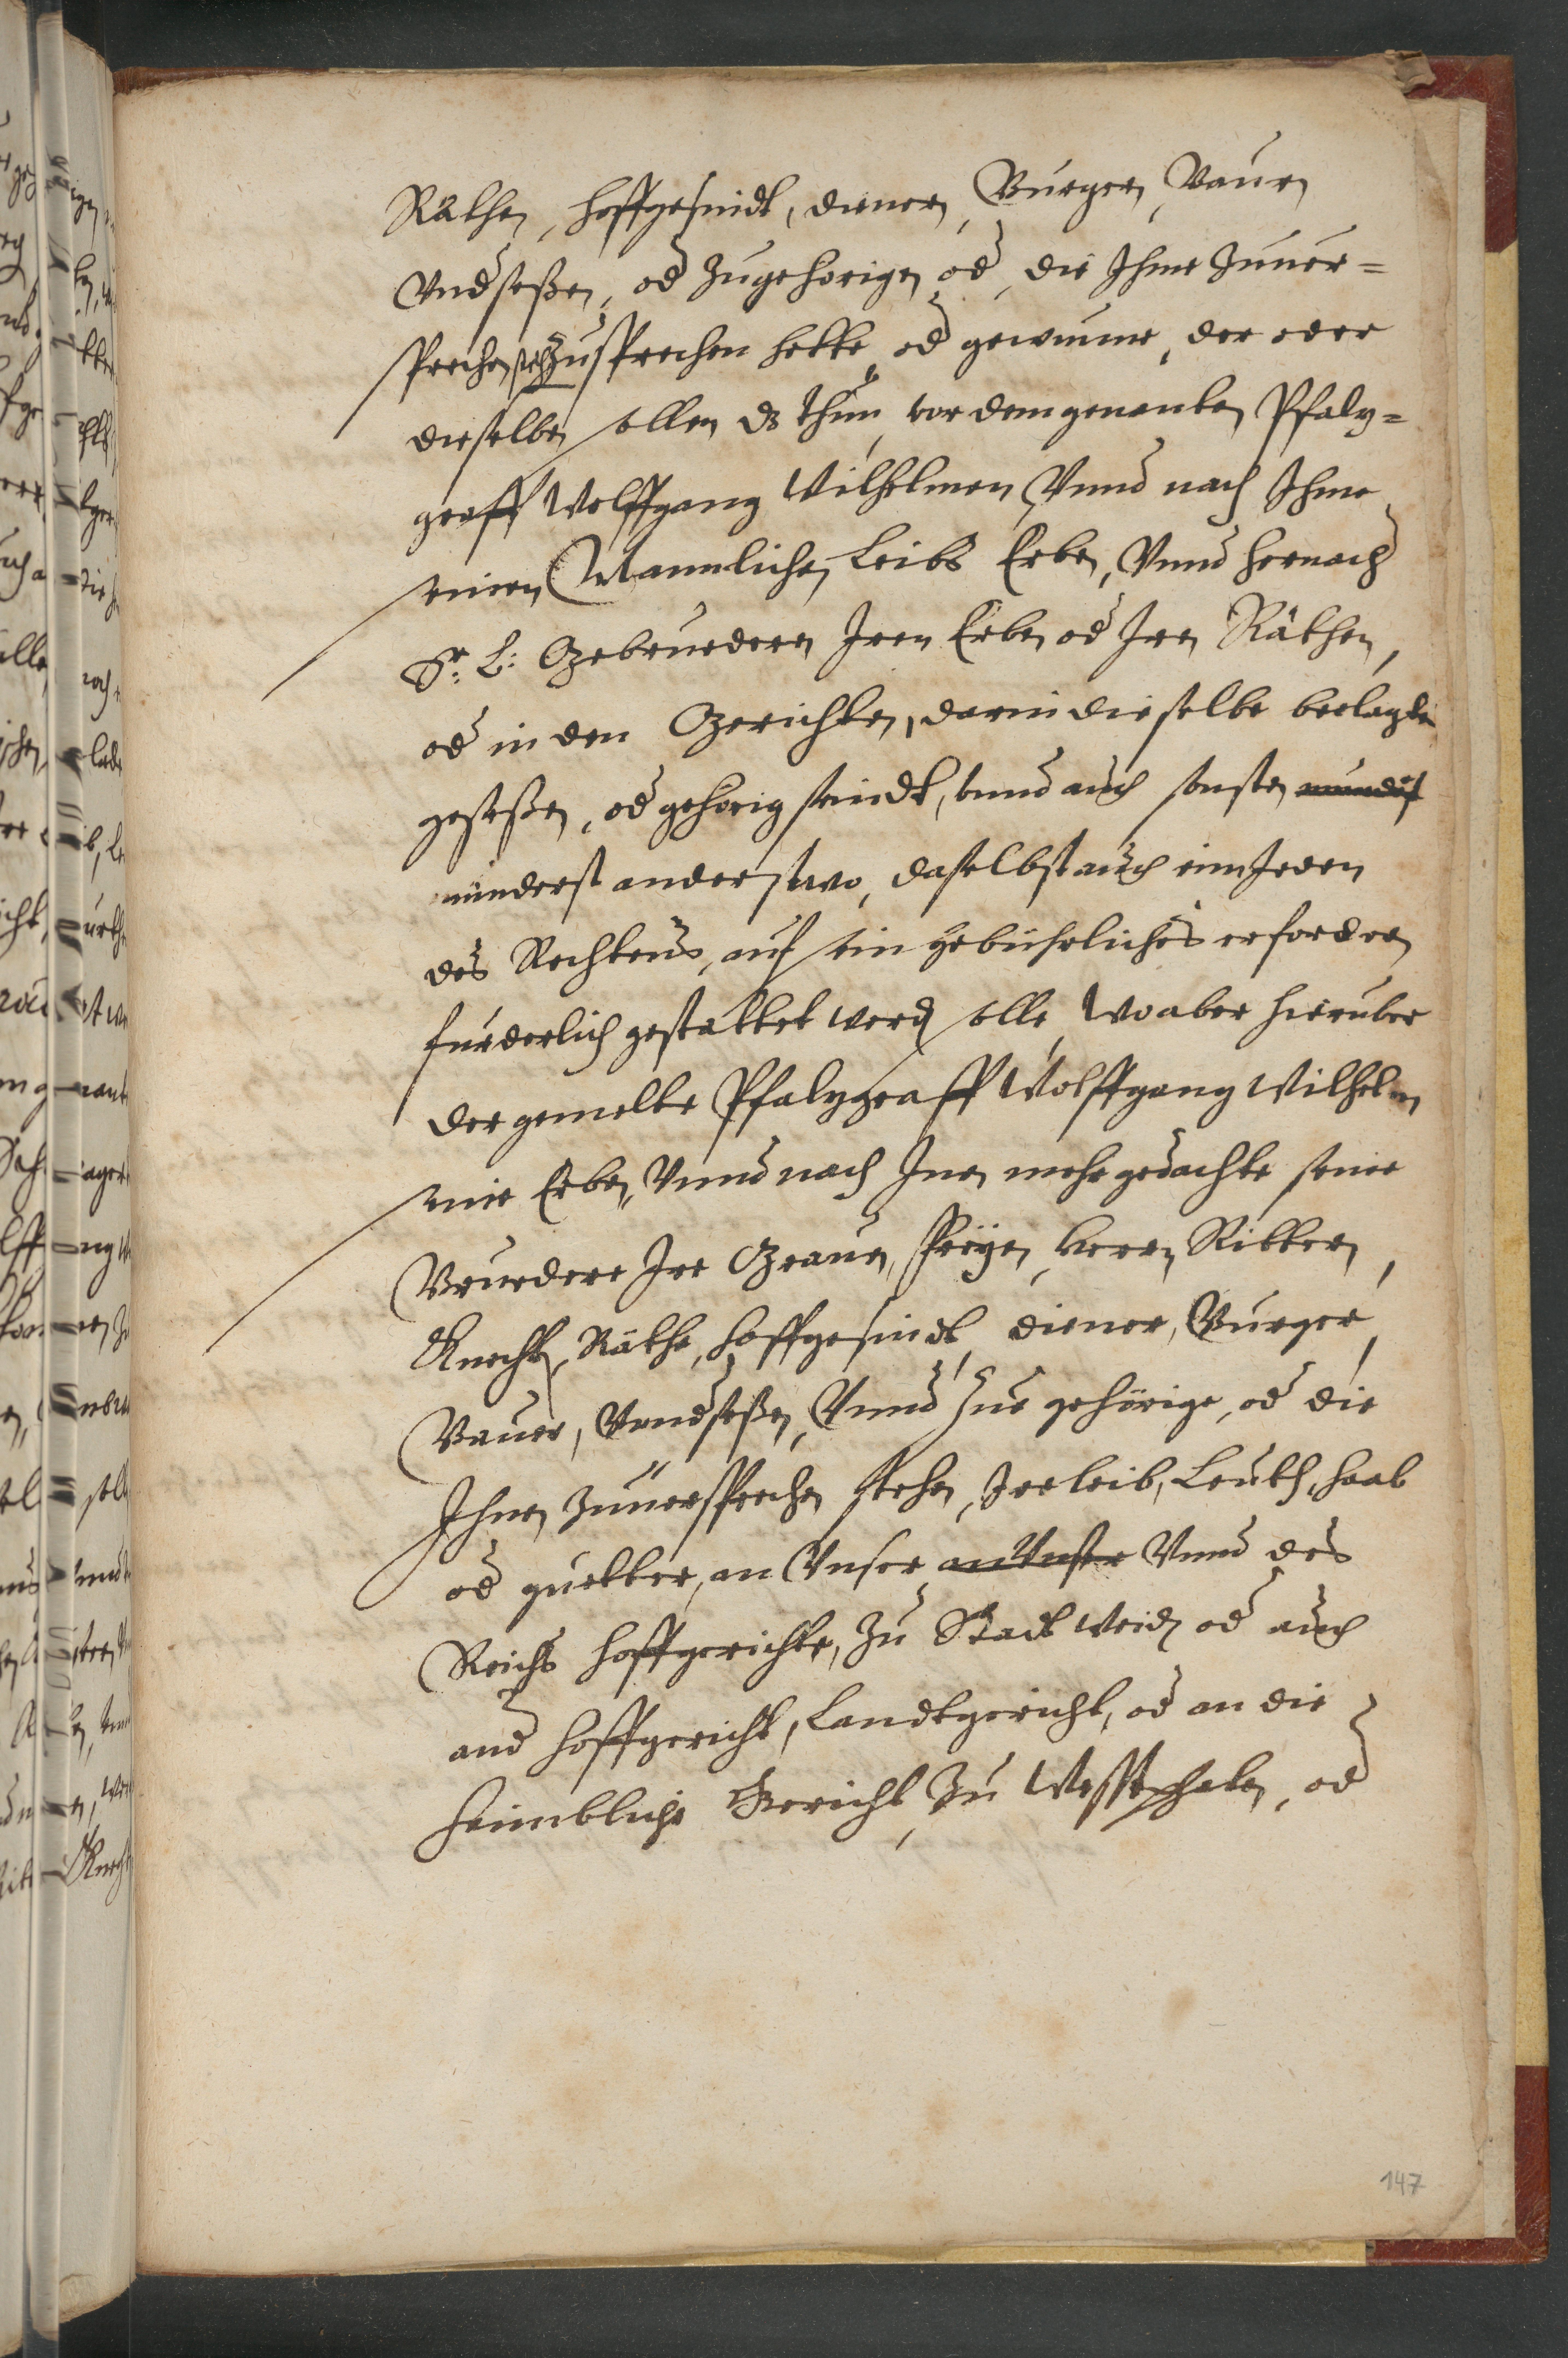 Räthen, hoffgesindt, dienern, Burgern, Bauren
Vndseßen, od Zugehorigen od, die Ihme Zuuer=
sprechen steh Zusprechen hette od gewunne, der oder
dieselben sollen ds thun, vor dem genanten Pfaltz=
graff Wolffgang Wilhelmen, Vnnd nach Ihme
seinen Mannlichen Leibs Erben, Vnnd hernach
Sr: L: Gebruedern Iren Erben od Iren Räthen,
od in den Gerichten, darin dieselbe beclagte
geseßen, od gehorig seindt, vnnd auch sonsten
ninderst anderstwo, daselbst auch eim Jeden
des Rechtens, auf sein gebuhrliches erfordern
furderlich gestattet werdn solle, Wo aber hieruber
der gemelte Pfaltzgraff Wolffgang Wilhelm
seine Erben, Vnnd nach Inen mehrgedachte seine
Bruedere Ire Grauen, Freÿen, Herrn Rittern,
Knecht, Räthe, hoffgesindt, diener, Burger,
Bauer, Vndseßen, Vnnd Zue gehörige, od die
Ihnen Zuuersprechen stehen, Ire leib, Leuth, haab
od guetter, an Vnser an Vnser Vnnd des
Reichs hoffgerichte, Zu Rottweil od auch
and hoffgericht, Landtgericht, od an die
heimbliche Gericht, Zu Westphalen, od
147